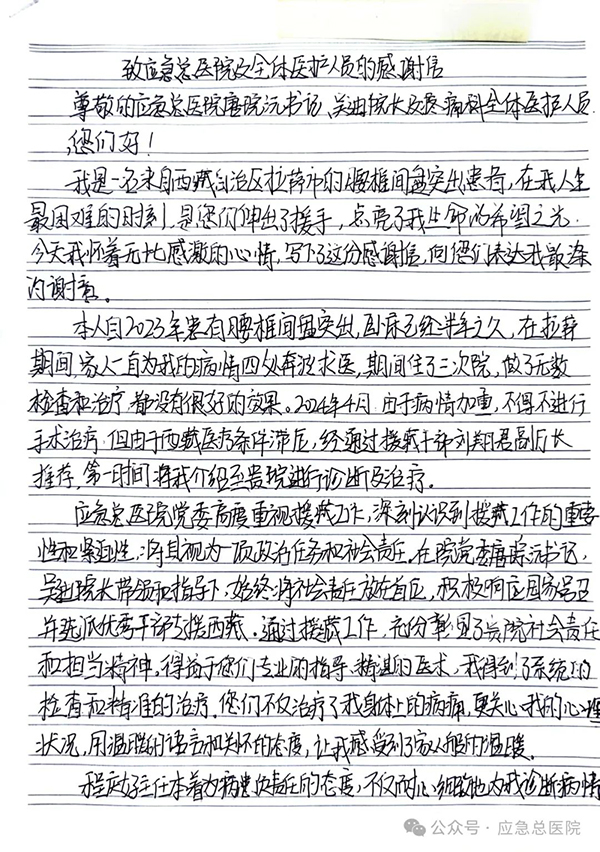 致应急总医院及全体医护人员的感谢信
尊敬的应急总医院唐踪沅书记、吴迪院长及疼痛科全体医护人员
您们好！
我是一名来自西藏自治区拉萨市的腰椎间盘突出患者，在我人生
最困难的时刻，是您们伸出了援手，点亮了我生命的希望之光.
今天我怀着无比感激的心情，写下了这份感谢信，向您们表达我最深
的谢意。
本人自2023年患有腰椎间盘突出，卧床已经半年之久，在拉萨
期间，家人一直为我的病情四处奔波求医，期间住了三次院，做了无数
检查和治疗，都没有很好的效果。2024年4月，由于病情加重，不得不进行
手术治疗，但由于西藏医疗条件滞后，经通过援藏干部刘翔君副厅长
推荐，第一时间将我介绍至贵院进行诊断及治疗.
应急总医院党委高度重视援藏工作，深刻认识到援藏工作的重要
性和紧迫性，将其视为一项政治任务和社会责任.在院党委唐踪沅书记，
吴迪院长带领和指导下，始终将社会责任放在首位，积极响应国家号召
并选派优秀干部支援西藏.通过援藏工作，充份彰显了贵院社会责任
和担当精神。得益于您们专业的指导、精湛的医术，我得到了系统的
检查和精准的治疗.您们不仅治疗了我身体上的病痛，更关心我的心理
状况，用温暖的语言和关怀的态度，让我感受到了家人般的温暖。
程庆好主任本着为病患负责任的态度，不仅耐心细致地为我诊断病情
公众号·应急总医院